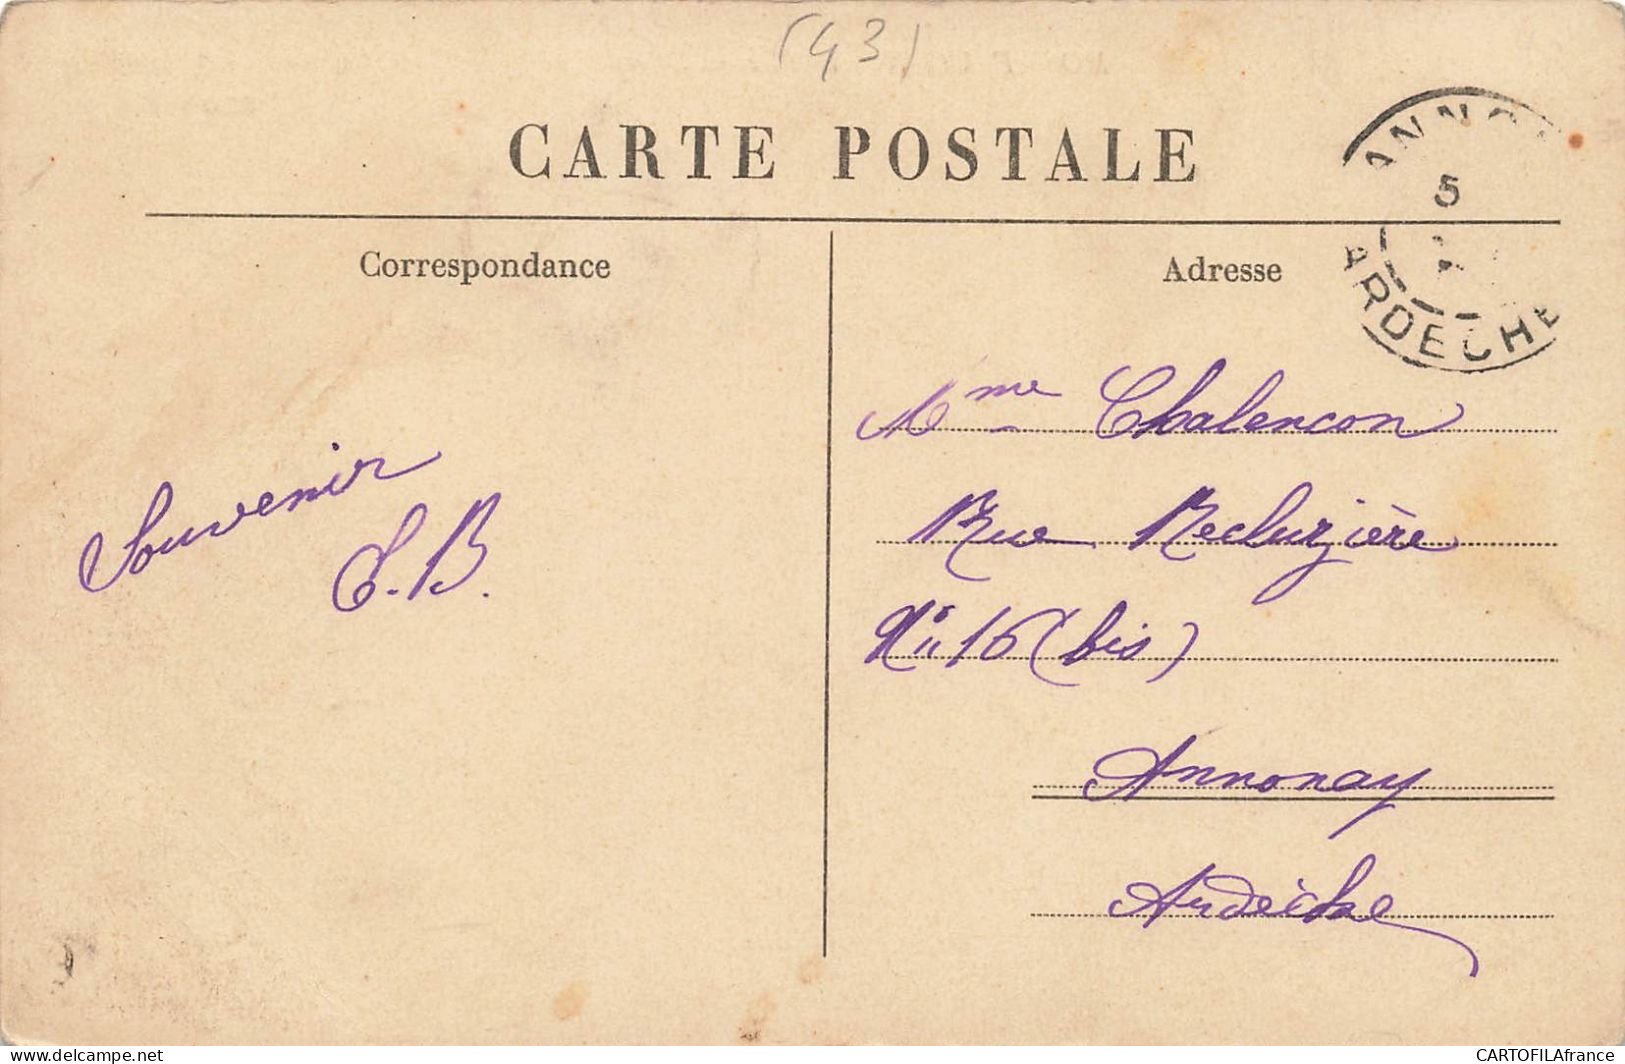 (43)
CARTE POSTALE
ANNO
5
ARDECHE
Correspondance
Adresse
Souvenir
S.B.
Mme Chalencon
Rue Recluzière
No 16 (bis)
Annonay
Ardèche
www.delcampe.net
CARTOFILAfrance